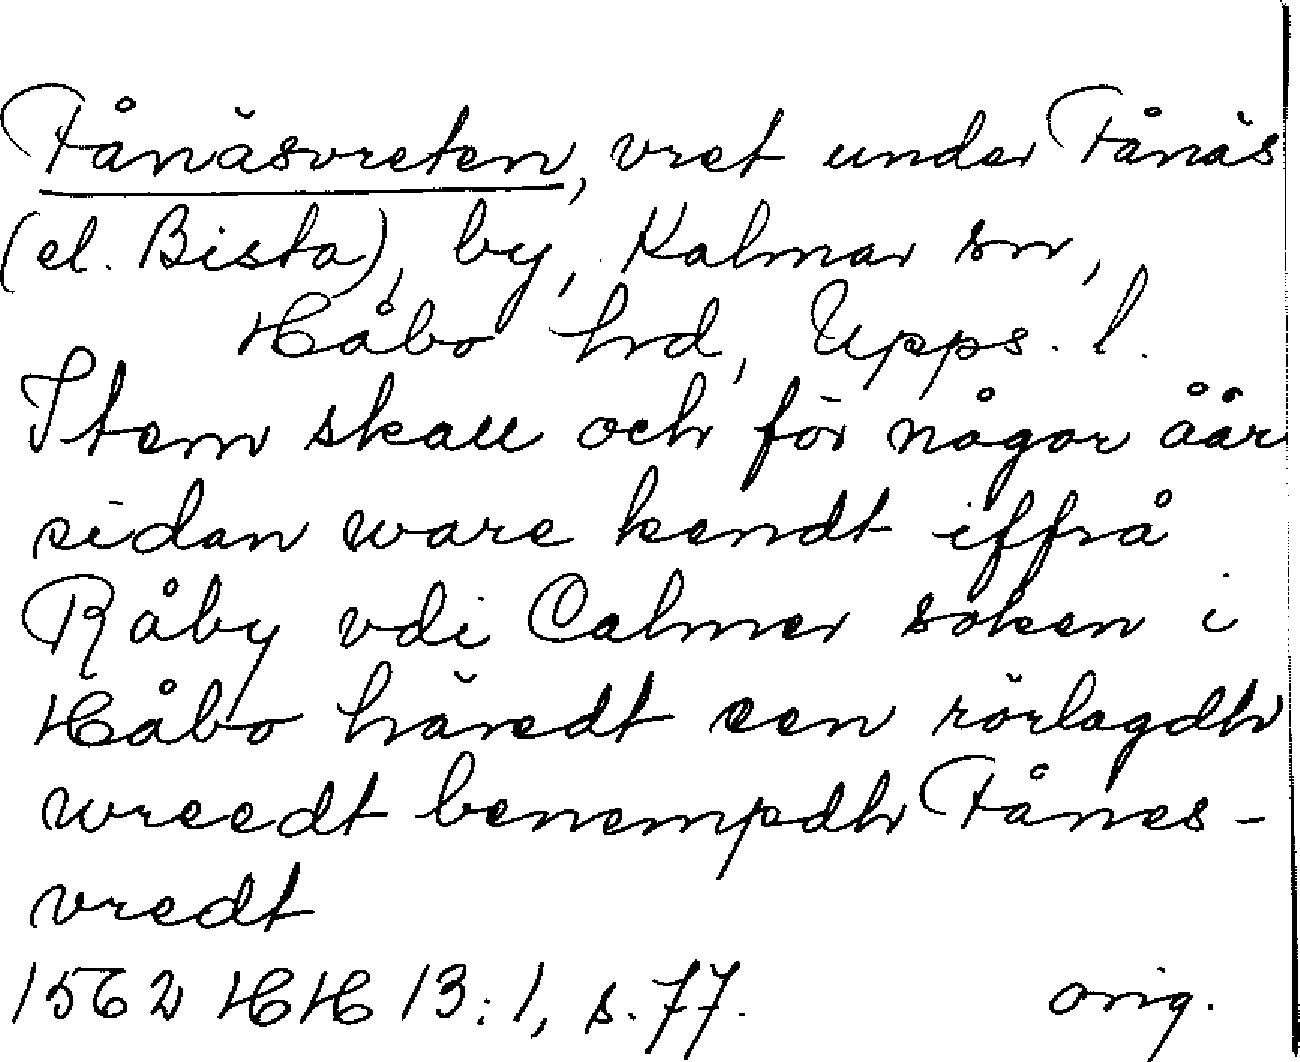 Fånäsvreten, vret under Fånäs
(el. Bista), by, Kalmar sn,
Håbo hd, Upps. l.
Item skall och för någor åår
sidan ware kendt iffrå
Råby vdi Calmer soken i
Håbo häredt een rörlagdh
wreedt benempdh Fånes-
vredt
1562 HH 13:1, s. 77. orig.